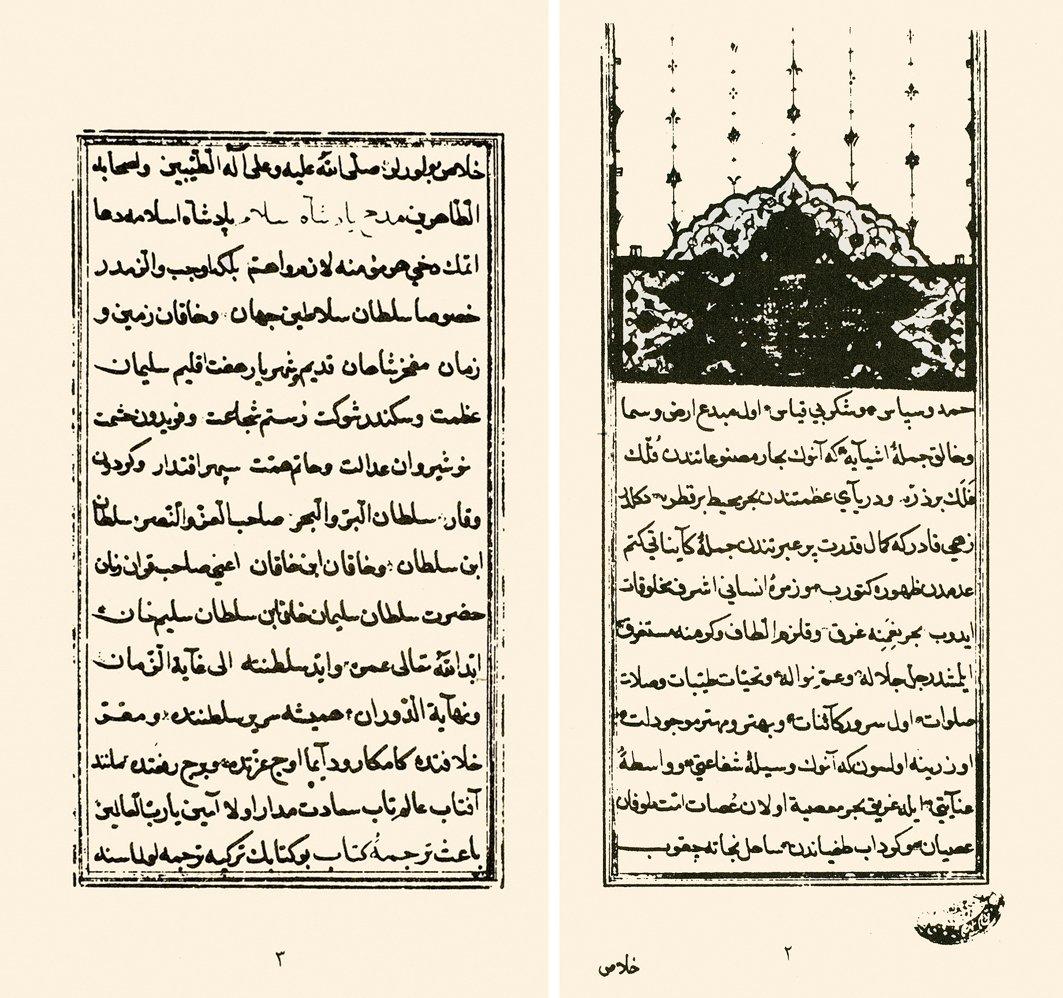 حمد وسپاس وشكر بی قیاس اول مبدع ارض وسما
وخالق جملۀ اشیآیه كه آنوك بحار مصنوعاتندن فُلْك
فَلَك بر ذرّه ودریآی عظمتندن بحر محیط بر قطره دكلدر
زهی قادر كه كمال قدرت پر عبرتندن جملۀ كآیناتی كتم
عدمدن ظهوره كتورب وزمرۀ انسانی اشرف مخلوقات
ایدوب بحر نعمنه غرق وقلزم الطاف وكرمنه مستغرق
ایلمشدر جلّ جلاله وعمّ نواله وتحیّات طیّبات وصلات
صلوات اول سرور كآئنات وبهتر ومهتر موجودات
اوزرینه اولسون كه آنوك وسیلۀ شفاعتی وواسطۀ
عنآیتی ایله غریق بحر معصیة اولان عُصات امّت طوفان
عصیان وكرداب طغیاندن ساحل نجاته چقوب
خلاص
٢
خلاص بولورلر صلّی الله علیه وعلی آله الطّیّبین واصحابه
الطّاهرین مدح پادشاه سلام پادشاه اسلامه دعا
اتمك دخی هر مؤمنه لازم واهمّ بلكه اوجب والزمدر
خصوصا سلطان سلاطین جهان وخاقان زمین و
زمان مفخر شاهان قدیم شهریار هفت اقلیم سلیمان
عظمت وسكندر شوكت رستم شجاعت وفریدون حشمت
نوشیروان عدالت وحاتم همّت سپهر اقتدار وكردون
وقار سلطان البرّ والبحر صاحب العزّ والنّصر سلطان
ابن سلطان وخاقان ابن خاقان اعنی صاحب قران زمان
حضرت سلطان سلیمان خان ابن سلطان سلیم خان
ابّد الله تعالی عمره وایّد سلطنته الی غآیة الزّمان
ونهآیة الدّوران همیشه سریر سلطنتده ومقرّ
خلافتده كامكار ودآیما اوج عزّتده وبرج رفعتده مانند
آفتاب عالم تاب سعادت مدار اولا آمین یا ربّ العالمین
باعث ترجمۀ كتاب بو كتابك تركیه ترجمه اولماسنه
٣